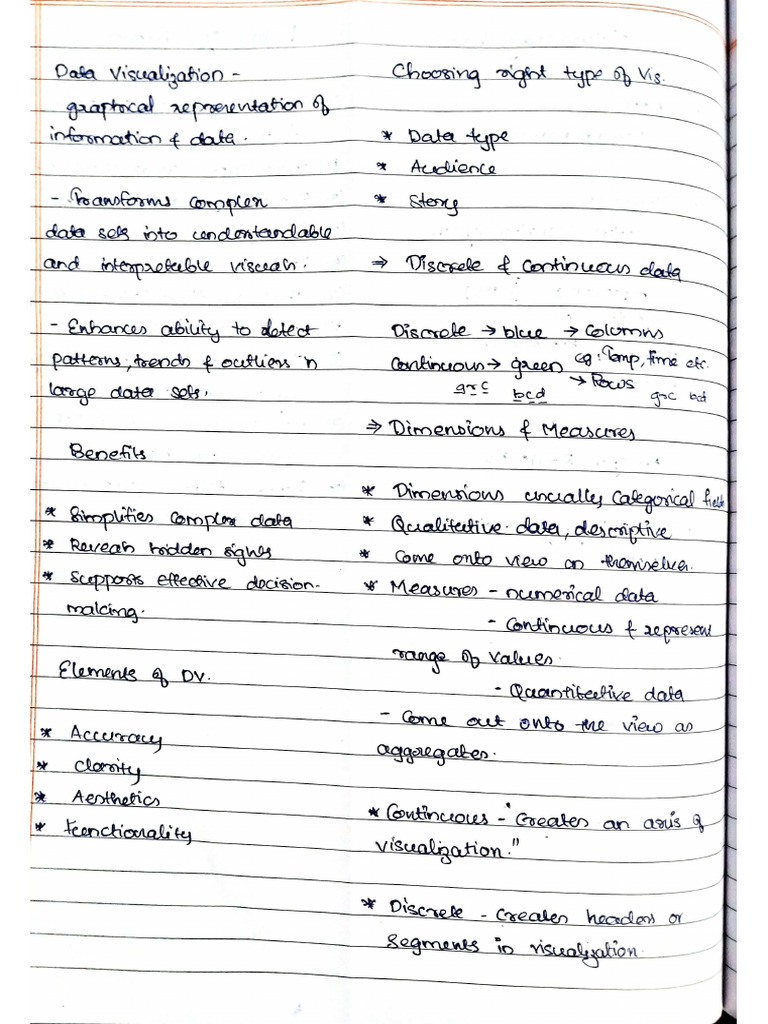 Data Visualization -
graphical representation of
information & data.
- Transforms complex
data sets into understandable
and interpretable visuals.
- Enhances ability to detect
patterns, trends & outliers in
large data sets.
Benefits
* Simplifies complex data
* Reveals hidden sights
* Supports effective decision.
making.
Elements of DV.
* Accuracy
* Clarity
* Aesthetics
* Functionality
Choosing right type of Vis.
* Data type
* Audience
* Story
⇒ Discrete & Continuous data
Discrete → blue → Columns
Continuous → green eg: Temp, Time etc.
→ Rows
grc bcd grc bcd
⇒ Dimensions & Measures
* Dimensions usually Categorical fields
* Qualitative data, descriptive
* Come onto view on themselves.
* Measures - numerical data
- Continuous & represent
range of values.
- Quantitative data
- Come out onto the view as
aggregates.
* Continuous - "Creates an axis of
visualization."
* Discrete - Creates headers or
Segments in visualization.